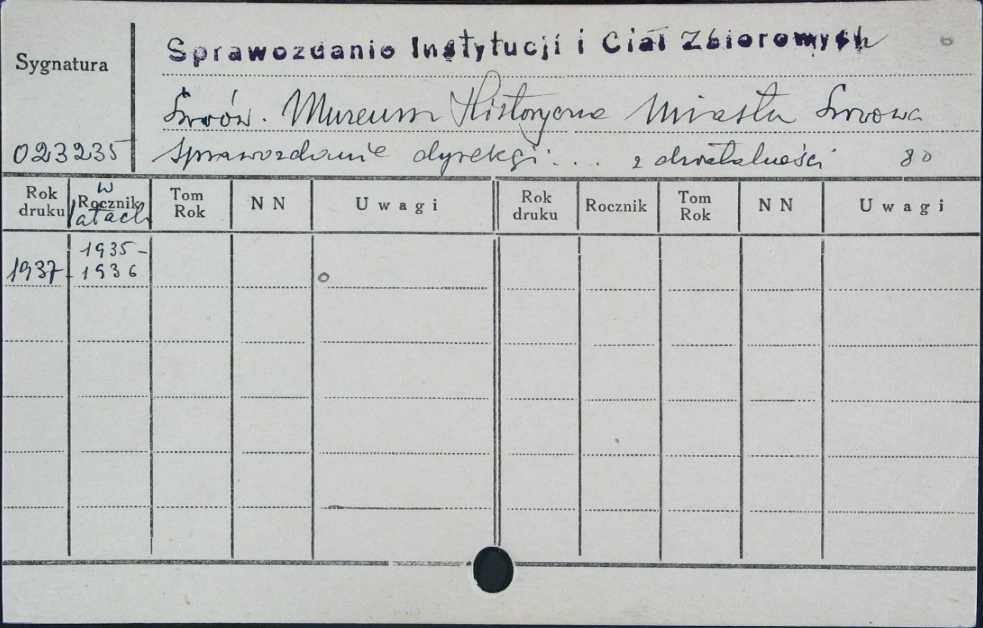 Sprawozdanie Instytucji i Ciał Zbiorowych 6
Sygnatura
Lwów. Muzeum Historyczne Miasta Lwowa
023235 Sprawozdanie dyrekcji... z działalności 80
Rok druku w Rocznik latach Tom Rok NN Uwagi Rok druku Rocznik Tom Rok NN Uwagi
1937 1935-1936